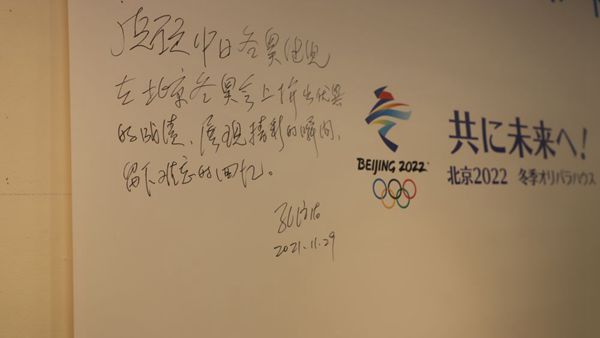 预祝中日冬奥健儿
在北京冬奥会上作出优异
的成绩、展现精彩的瞬间、
留下难忘的回忆。
2021.11.29
BEIJING 2022
共に未来へ!
北京2022 冬季オリパラハウス